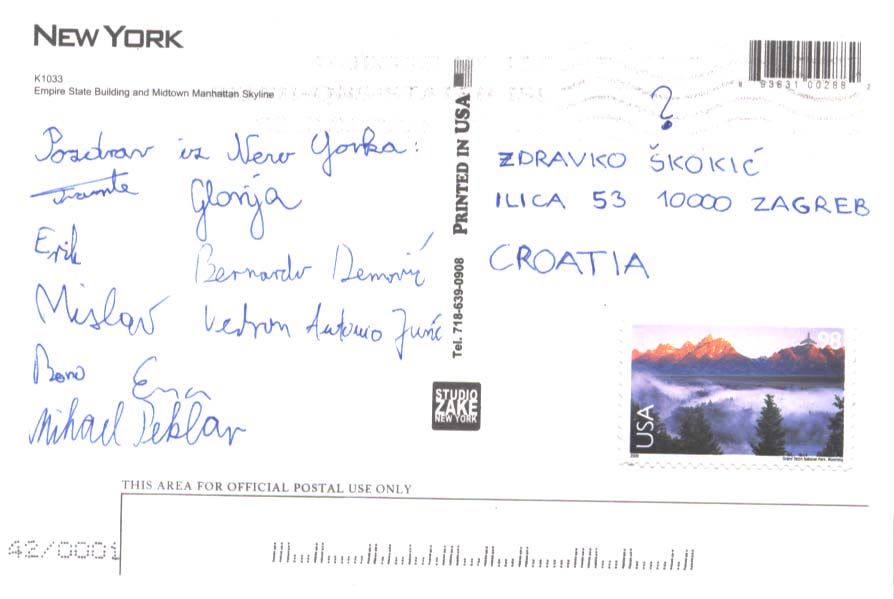 NEW YORK
K1033
Empire State Building and Midtown Manhattan Skyline
Pozdrav iz New Yorka:
Glorija
Erik
Bernardo Demović
Mislav
Vedran Antonio Jurić
Bono
Ena
Mihael Peklar
PRINTED IN USA
Tel. 718-639-0908
STUDIO
ZAKE
NEW YORK
9 93631 00288 2
?
ZDRAVKO ŠKOKIĆ
ILICA 53 10000 ZAGREB
CROATIA
98
USA
2009
Grand Teton National Park, Wyoming
THIS AREA FOR OFFICIAL POSTAL USE ONLY
42/0001